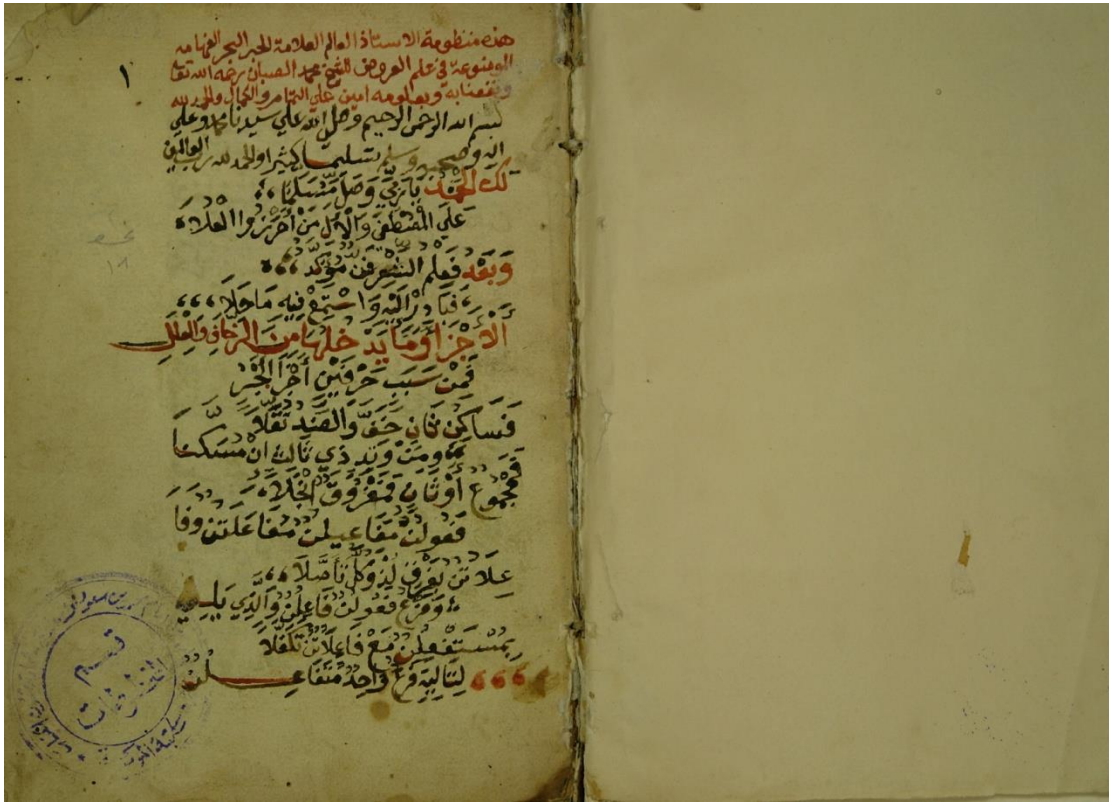 هذه منظومة الاستاذ العالم العلامة الحبر البحر الفهامه
الموضوعة في علم العروض للشيخ محمد الصبان رحمه الله تعا
ونفعنا به وبعلومه امين علي التمام والكمال والحمد لله
١
بسم الله الرحمن الرحيم وصل الله علي سيدنا محمد وعلي
اله وصحبه وسلم تسليما كثيرا والحمد لله رب العالمين
لَكَ الْحَمْدُ يَا رَبِّي وَصَلِّ مُسَلِّمًا
عَلَي الْمُصْطَفَي وَالْاٰلِ مَنْ أَحْرَزُوا الْعُلَا
وَبَعْدُ فَعِلْمُ الشِّعْرِ فَنٌّ مُؤَكَّدُ
فَبَادِرْ إِلَيْهِ وَاسْتَمِعْ فِيهِ مَا حَلَا
اَلْأَجْزَا وَمَا يَدْخُلُهَا مِنَ الزِّحَافِ وَالْعِلَلِ
فَمِنْ سَبَبٍ حَرْفَيْنِ أَجْزَا
فَسَاكِنُ ثَانٍ خَفَّ وَالضِّدُّ ثَقَّلَا
وَمِنْ وَتِدٍ ذِي ثَالِثٍ انْ مُسَكَّنًا
فَمَجْمُوعٌ أَوْ ثَانٍ فَمَفْرُوقٌ انْجَلَا
فَعُولُنْ مَفَاعِيلُنْ مُفَاعَلَتُنْ وَفَا
عِلَاتُنْ بِفَرْقٍ تَأَصَّلَا
وَفَرْعُ فَعُولُنْ فَاعِلُنْ وَالَّذِي يَلِي
بِمُسْتَفْعِلُنْ مَعْ فَاعِلَاتُنْ تَكَفَّلَا
لِتَالِيهِ فَرْعٌ وَاحِدٌ مُتَفَاعِلُنْ
قسم
المخطوطات